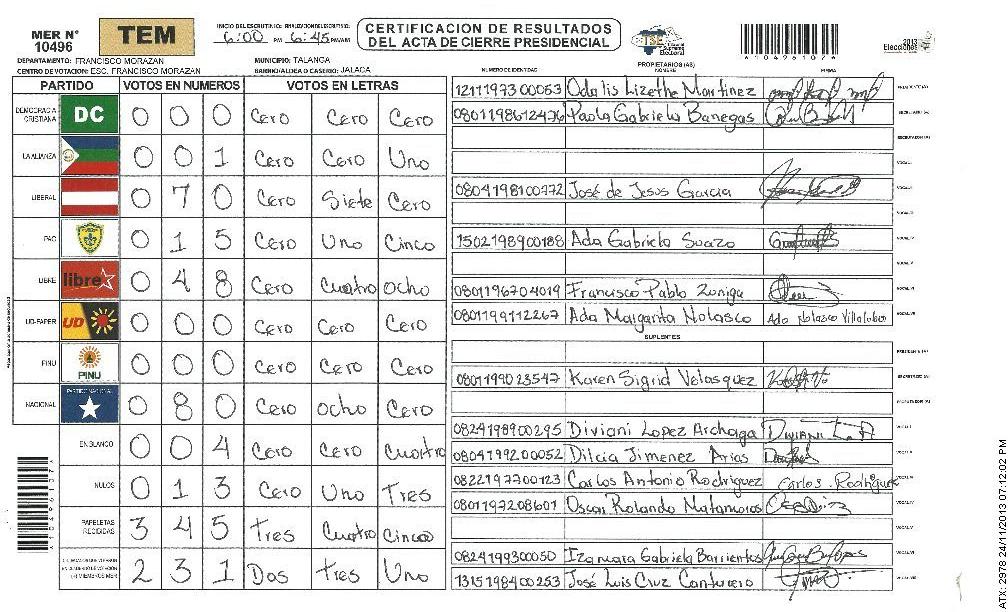 MER N° 10496
TEM
INICIO DEL ESCRUTINIO: FINALIZACION DEL ESCRUTINIO:
6:00 PM 6:45 PM/AM
CERTIFICACION DE RESULTADOS
DEL ACTA DE CIERRE PRESIDENCIAL
TSE Tribunal Supremo Electoral
2013
Elecciones
DEPARTAMENTO: FRANCISCO MORAZAN
MUNICIPIO: TALANGA
CENTRO DE VOTACION: ESC. FRANCISCO MORAZAN
BARRIO/ALDEA O CASERIO: JALACA
PARTIDO VOTOS EN NUMEROS VOTOS EN LETRAS
DEMOCRACIA CRISTIANA DC 0 0 0 Cero Cero Cero
LA ALIANZA 0 0 1 Cero Cero Uno
LIBERAL 0 7 0 Cero Siete Cero
PAC 0 1 5 Cero Uno Cinco
LIBRE libre 0 4 8 Cero Cuatro ocho
UD-FAPER UD 0 0 0 Cero Cero Cero
PINU PINU 0 0 0 Cero Cero Cero
NACIONAL PARTIDO NACIONAL 0 8 0 Cero ocho Cero
EN BLANCO 0 0 4 Cero Cero Cuatro
NULOS 0 1 3 Cero Uno Tres
PAPELETAS RECIBIDAS 3 4 5 Tres Cuatro Cinco
2 3 1 Dos Tres Uno
NUMERO DE IDENTIDAD PROPIETARIOS (AS) NOMBRE FIRMA
1211197300053 Odalis Lizethe Martinez PRESIDENTE (A)
0801198612476 Paola Gabriela Banegas SECRETARIO (A)
ESCRUTADOR (A)
VOCAL I
0804198100772 José de Jesus Garcia VOCAL II
VOCAL III
1502198900188 Ada Gabriela Suazo VOCAL IV
VOCAL V
0801196704019 Francisco Pablo Zuniga VOCAL VI
0801199112267 Ada Margarita Nolasco Ada Nolasco Villalobo VOCAL VII
SUPLENTES
PRESIDENTE (A)
0801199023547 Karen Sigrid Velasquez SECRETARIO (A)
ESCRUTADOR (A)
0824198900295 Diviani Lopez Archaga VOCAL I
0804199200052 Dilcia Jimenez Arias VOCAL II
0822197700123 Carlos Antonio Rodriguez Carlos. Rodriguez VOCAL III
0801197208601 Oscar Rolando Matamoros VOCAL IV
VOCAL V
0824199300050 Izamara Gabriela Barrientos VOCAL VI
1315198400253 José Luis Cruz Canturero VOCAL VII
ATX: 2978 24/11/2013 07:12:02 PM